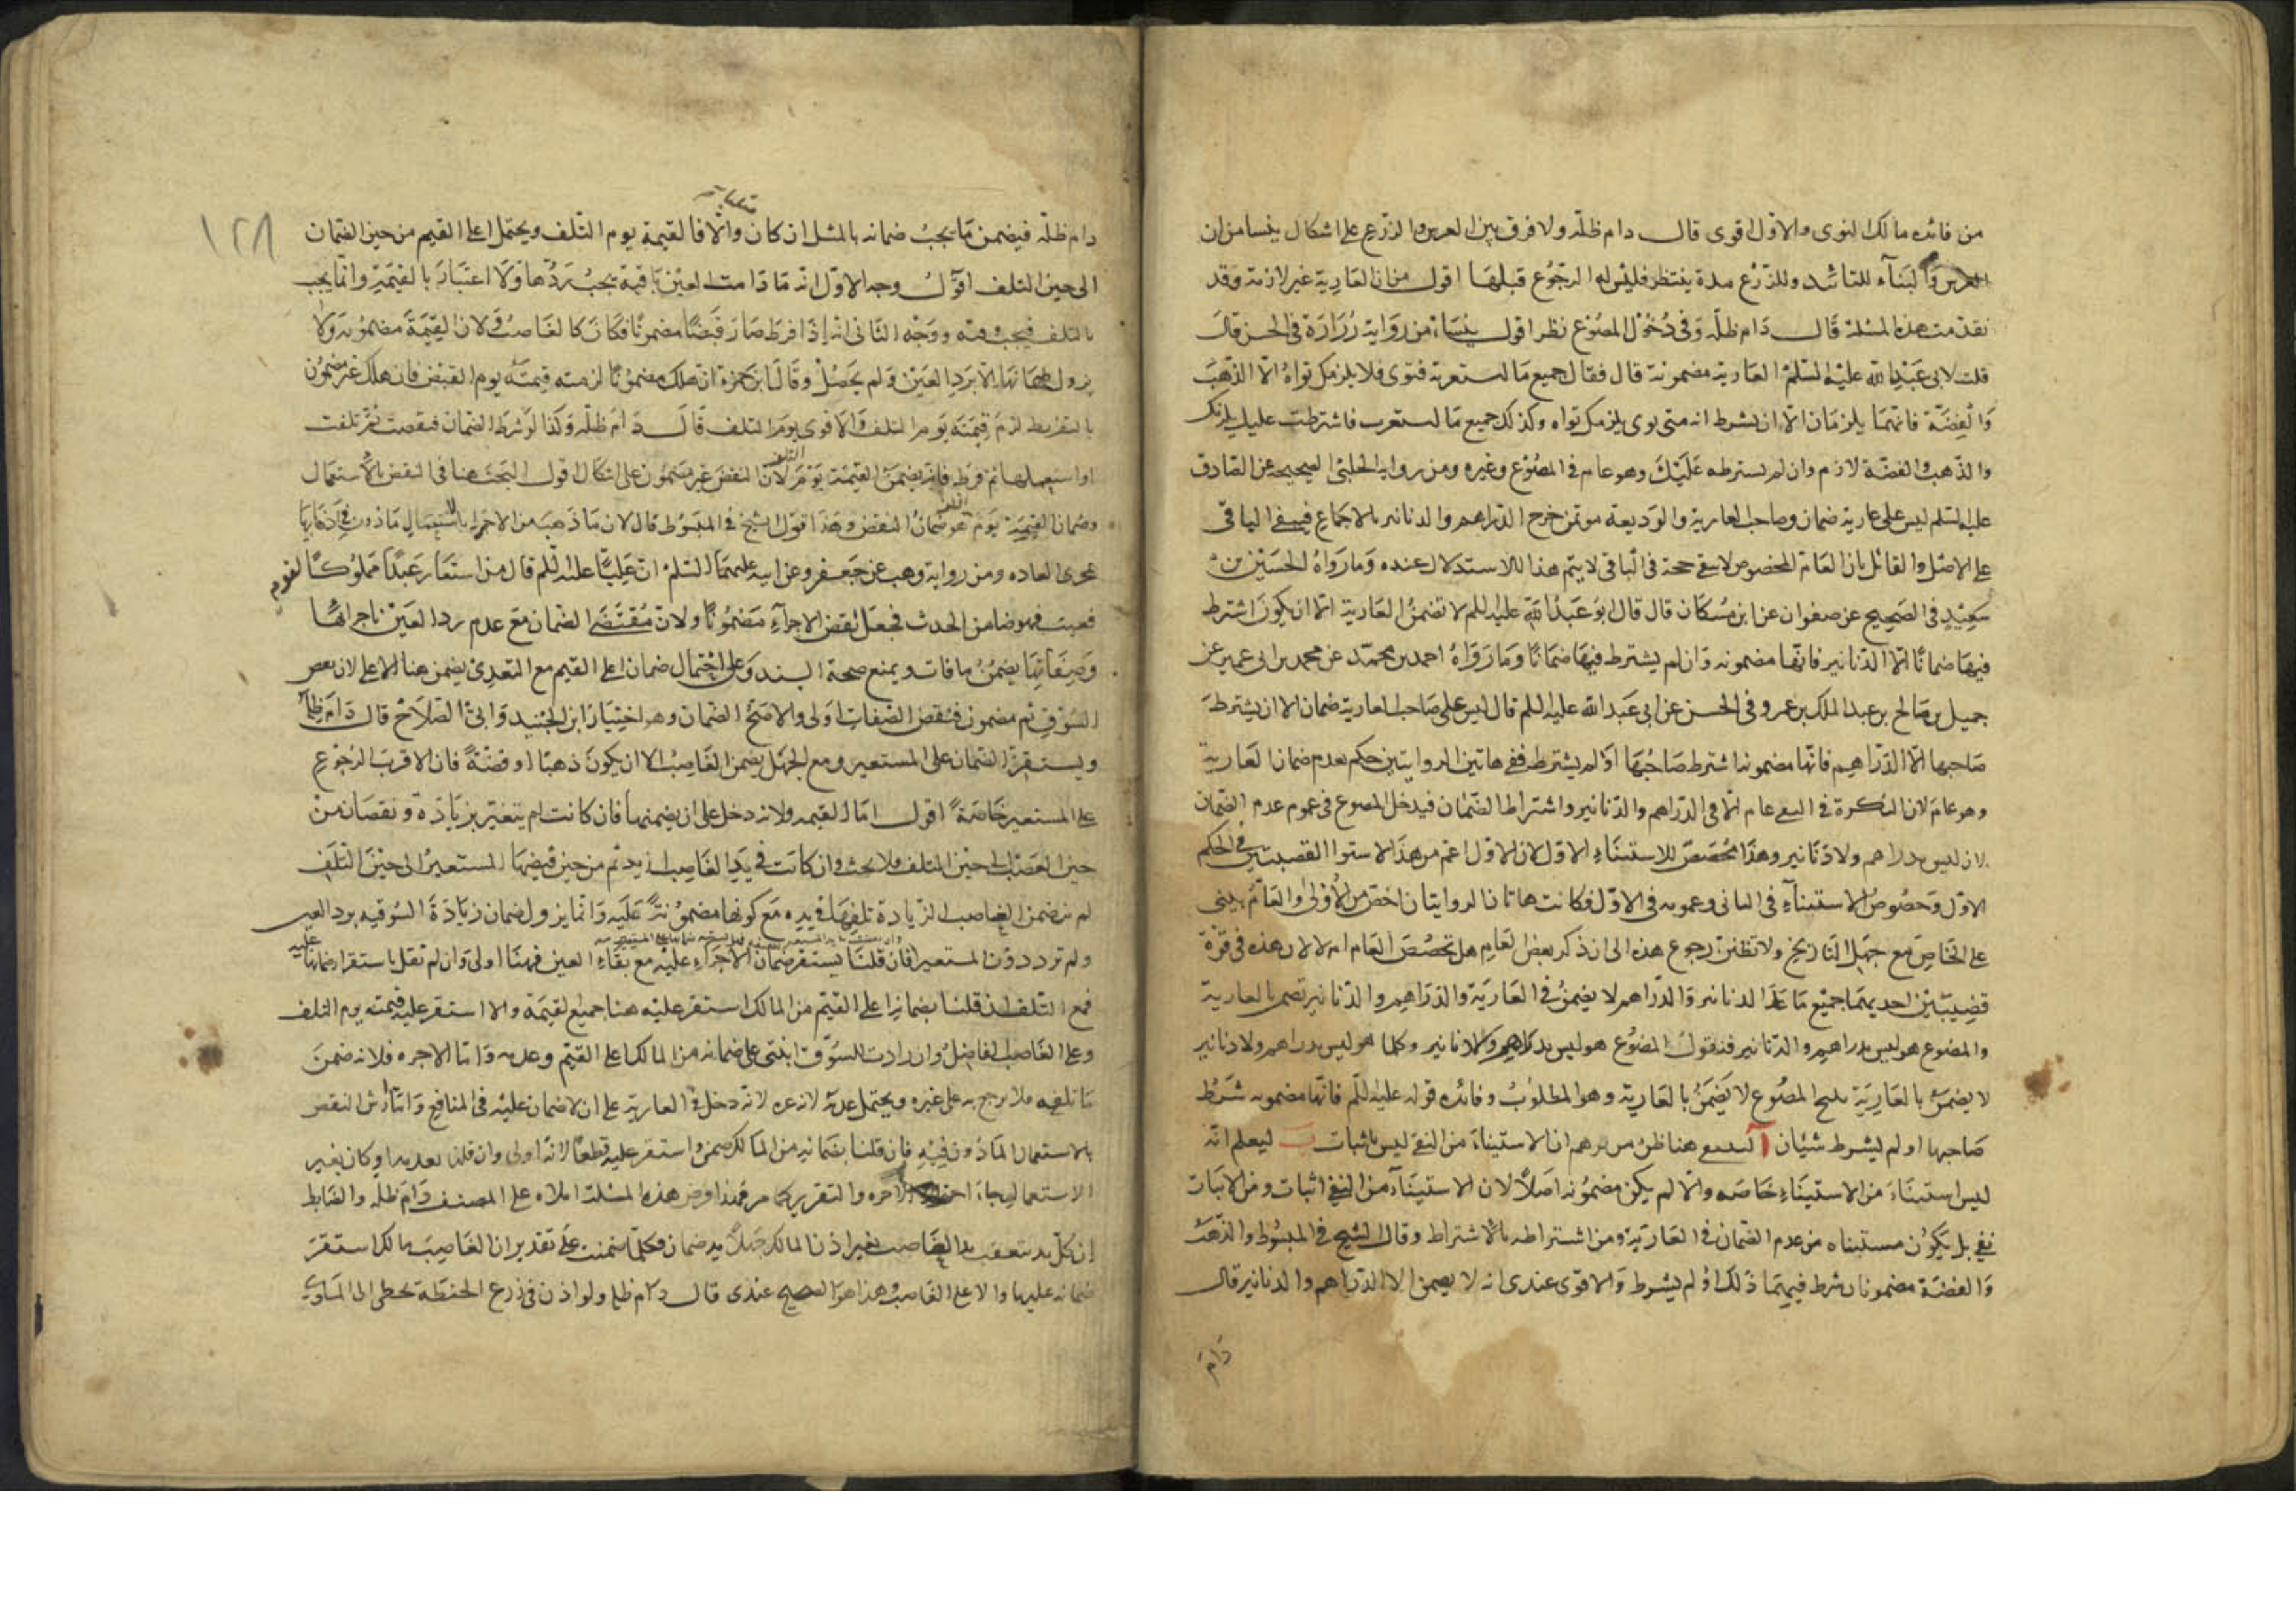 من فائده مالك النوى والاول اقوى قال دام ظله ولا فرق بين الغرس والزرع على اشكال ينشا من ان
الغرس والبناء للتائبد وللزرع مدة ينتظر فليس له الرجوع قبلها اقول من ان العارية غير لازمة وقد
تقدمت هذه المسئلة قال دام ظله وفي دخول المصوغ نظر اقول ينشاء من رواية زرارة في الحسن قال
قلت لابى عبد الله عليه السلم العارية مضمونة قال فقال جميع ما استعرته فتوى فلا يلزمك تواه الا الذهب
والفضة فانهما يلزمان الا ان يشرط انه متى توى يلزمك تواه وكذلك جميع ما استعرت فاشترطت عليك يلزمك
والذهب والفضة لازم وان لم يشترطه عليك وهو عام في المصوغ وغيره ومن رواية الحلبى الصحيحة عن الصادق
عليه السلم ليس على عارية ضمان وصاحب العارية والوديعة موتمن خرج الدراهم والدنانير بالاجماع فيبقى الباقى
على الاصل والقائل بان العام المخصوص لا يبقى حجة في الباقى لا يتم هذا الاستدلال عنده وما رواه الحسين بن
سعيد في الصحيح عن صفوان عن ابن مسكان قال قال ابو عبد الله عليه السلم لا تضمن العارية الا ان يكون اشترط
فيها ضمانا الا الدنانير فانها مضمونه وان لم يشترط فيها ضمانا وما رواه احمد بن محمد عن محمد بن ابى عمير عن
جميل بن صالح بن عبد الملك بن عمرو في الحسن عن ابى عبد الله عليه السلم قال ليس على صاحب العارية ضمان الا ان يشترط
صاحبها الا الدراهم فانها مضمونه اشترط صاحبها او لم يشترط ففي هاتين الروايتين حكم بعدم ضمان العارية
وهو عام لان النكرة في النفى عام الا في الدراهم والدنانير واشتراط الضمان فيدخل المصوغ في عموم عدم الضمان
لانه ليس بدراهم ولا دنانير وهذا مخصص للاستثناء الاول لان الاول اعم من هذا لاستوا القضيتين في الحكم
الاول وخصوص الاستثناء في الثانى وعمومه في الاول فكانت هاتان الروايتان اخص من الاولى والعام يبنى
على الخاص مع جهل التاريخ ولا تظنن رجوع هذه الى ان ذكر بعض العام هل تخصص العام ام لا لان هذه في قوة
قضيتين احديهما جميع ما عدا الدنانير والدراهم لا يضمن في العارية والدراهم والدنانير تضمن بالعارية
والمصوغ هو ليس بدراهم والدنانير فنقول المصوغ هو ليس بدراهم ولا دنانير وكلما هو ليس بدراهم ولا دنانير
لا يضمن بالعارية ينتج المصوغ لا يضمن بالعارية وهو المطلوب وفائده قوله عليه السلم فانها مضمونه شرط
صاحبها او لم يشرط شيئان آ هنا ظن من توهم ان الاستيناء من النفى ليس باثبات ب ليعلم انه
ليس استثناء من الاستيناء خاصه والا لم يكن مضمونه اصلا لان الاستيناء من النفى اثبات ومن الاثبات
نفي بل يكون مستثناه من عدم الضمان في العارية ومن اشتراطه بالاشتراط وقال الشيخ في المبسوط والذهب
والفضة مضمونان شرط فيهما ذلك او لم يشرط والاقوى عندى انه لا يضمن الا الدراهم والدنانير قال
دام
١٢٨
دام ظله فيضمن ما يجب ضمانه بالمثل ان كان والا فالقيمة يوم التلف ويحتمل اعلى القيم من حين الضمان
الى حين التلف اقول وجه الاول انه ما دامت العين باقية يجب ردها ولا اعتبار بالقيمة وانما يجب
بالتلف فيجب منه ووجه الثانى انه اذا فرط صار قبضا مضمونا فكان كالغاصب ولان القيمة مضمونه ولا
يزول ضمانها الا برد العين ولم يحصل وقال ابن حمزة ان هلك مضمونا لزمته قيمته يوم القبض فان هلك غير مضمون
بالتفريط لزم قيمته يوم التلف والاقوى يوم التلف قال دام ظله وكذا لو شرط الضمان فنقصت ثم تلفت
او استعملها ثم فرط فانه يضمن القيمة يوم التلف لان النقص غير مضمون على اشكال اقول البحث هنا في النقص بالاستعمال
وضمان القيمة يوم التلف هو ضمان النقص وهذا قول الشيخ في المبسوط قال لان ما ذهب من الاجزاء بالاستعمال ماذون في اذهابها
بمجرى العاده ومن رواية وهب عن جعفر وعن ابيه عليهما السلم ان عليا عليه السلم قال من استعار عبدا مملوكا لقوم
فعيب فهو ضامن الحدث فجعل نقص الاجزاء مضمونا ولان مقتضى الضمان مع عدم رد العين باجزائها
وصفاتها يضمن ما فات ويمنع صحة السند وعلى احتمال ضمان اعلى القيم مع التعدى يضمن هنا الاعلى لان بعض
السوق ثم مضمون فنقص الصفات اولى والاصح الضمان وهو اختيار ابن الجنيد وابى الصلاح قال دام ظله
ويستقر الضمان على المستعير ومع الجهل يضمن الغاصب الا ان يكون ذهبا او فضة فان الاقرب الرجوع
على المستعير خاصة اقول اما القيمه ولانه دخل على ان يضمنها فان كانت لم يتغير بزيادة ونقصان من
حين الغصب الى حين التلف فلا بحث وان كانت في يد الغاصب ازيد ثم من حين قبضها المستعير الى حين التلف
لم يضمن الغاصب الزيادة تلفها في يده مع كونها مضمونة عليه وانما يزول ضمان زيادة السوقيه برد العين
ولم ترد دون المستعير فان قلنا يستقر ضمان الاجزاء عليه مع بقاء العين فهنا اولى وان لم نقل باستقرار ضمانها عليه
فمع التلف ان قلنا بضمانها على القيم من المالك استقر عليه هنا جميع القيمة والا استقر عليه قيمته يوم التلف
وعلى الغاصب الفاضل وان زادت للسوق ابنى على ضمانه من المالك اعلى القيم وعدمه واما الاجره فلانه ضمن
ما تلفه فلا يرجع به على غيره ويحتمل عدمه لانه غره لانه دخل في العارية على ان لا ضمان عليه في المنافع واما ارش النقص
بالاستعمال الماذون فيه فان قلنا بضمانه من المالك ضمن واستقر عليه قطعا لانه اولى وان قلنا بعدمه او كان بغير
الاستعمال الاجره والتقرير كما مر هذه المسئلة املاه على المصنف دام ظله والضابط
ان كل يد تتعقب يد الغاصب بغير اذن المالك جهلا يد ضمان فكلما ضمنت على تقدير ان الغاصب مالك استقر
ضمانه عليها والا على الغاصب وهذا هو الصحيح عندى قال دام ظله ولو اذن في زرع الحنطة تخطى الى المساوى